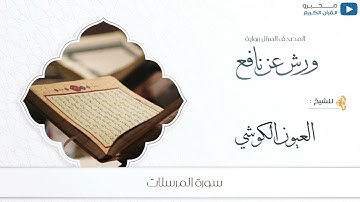 محبرو
القرآن الكريم
المصحف المرتل برواية
ورش عن نافع
للشيخ :
العيون الكوشي
سورة المرسلات